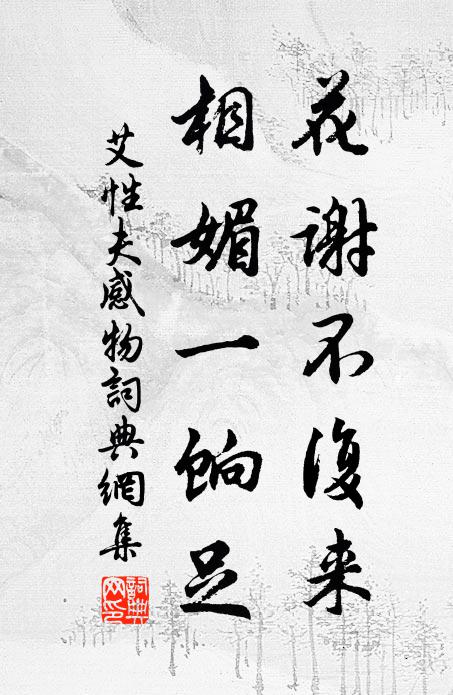 花谢不復来
相媚一餉足
艾性夫感物詞典網集
詞典網印